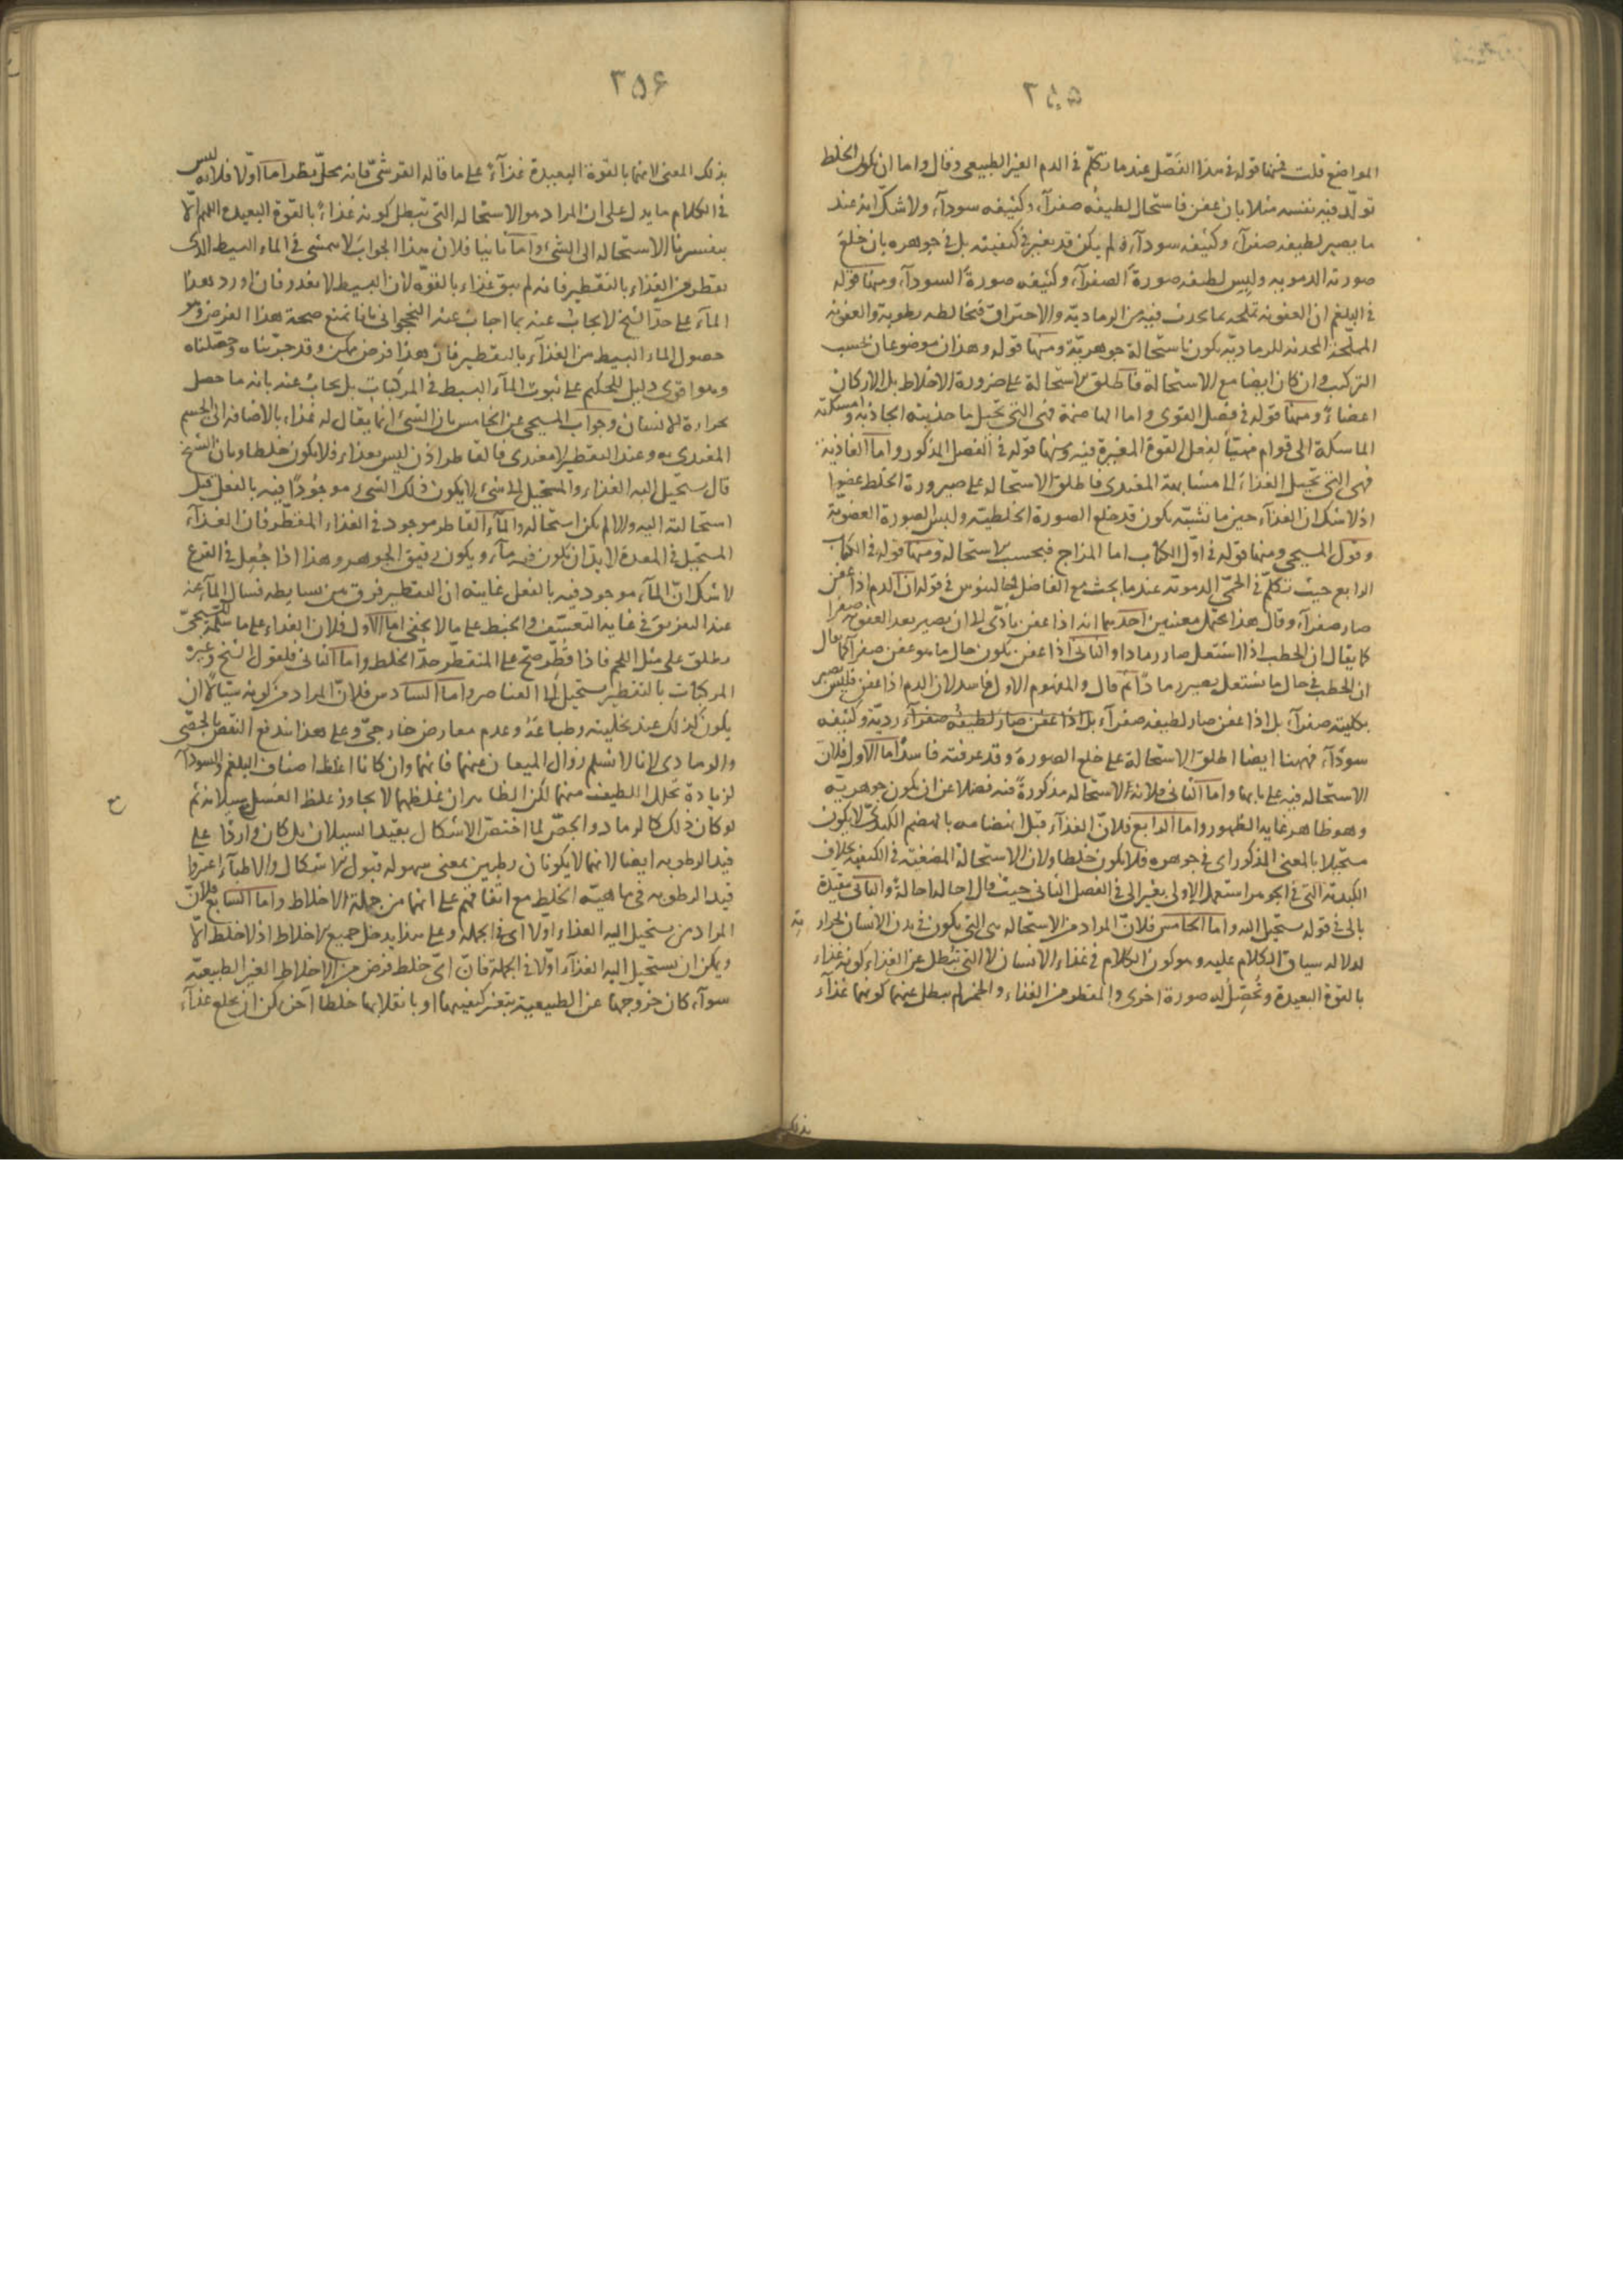 ٣٥٥
المواضع قلت فمنها قوله في هذا الفصل عند ما تكلّم في الدم الغير الطبيعي وقال واما ان يكون الخلط
تولّد فيه نفسه مثلا بان عفن فاستحال لطيفه صفرآء وكثيفه سودآء ولاشك انه عند
ما يصير لطيفه صفرآء وكثيفه سودآء لم يكن قد تغير في كيفيته بل في جوهره بان خلع
صورته الدموية ولبس لطيفه صورة الصفرآء وكثيفه صورة السودآء ومنها قوله
في البلغم ان العفونة تملحه بما يحدث فيه من الرمادية والاحتراق فتخالطه رطوبة والعفونة
المملحة المحدثة للرمادية يكون باستحالة جوهرية ومنها قوله وهذان موضوعان بحسب
التركيب وان كان ايضا مع الاستحالة فاطلق الاستحالة على صيرورة الاخلاط بل الاركان
اعضاءً ومنها قوله في فصل القوى واما الهاضمة فهي التي تحيل ما جذبته الجاذبة وامسكته
الماسكة الى قوام مهيّأ لفعل القوة المغيرة فيه ومنها قوله في الفصل المذكور واما الغاذية
فهي التي تحيل الغذاء الى مشابهة المغتذي فاطلق الاستحالة على صيرورة الخلط عضوا
اذ لا شك ان الغذآء حين ما تشبّه يكون قد خلع الصورة الخلطية ولبس الصورة العضوية
وقول المسيحي ومنها قوله في اوّل الكتاب اما المزاج فبحسب الاستحالة ومنها قوله في الكتاب
الرابع حيث تكلّم في الحمّى الدموية عند ما بحث مع الفاضل جالينوس في قوله ان الدم اذا عفن
صار صفرآء وقال هذا يحتمل معنيين احدهما انه اذا عفن تأدّى الى ان يصير بعد العفونة صفرا
كما يقال ان الحطب اذا اشتعل صار رمادا والثاني اذا عفن يكون حال ما هو عفن صفرآء كما يقال
ان الحطب في حال ما يشتعل يصير رمادًا ثم قال والمفهوم الاول فاسد لان الدم اذا عفن فليس يصير
بكليته صفرآء بل اذا عفن صار لطيفه صفرآء بل اذا عفن صار لطيفه صفرآء رديّة وكثيفه
سودآء فههنا ايضا اطلق الاستحالة على خلع الصورة وقد عرفته فاسدًا اما الاول فلان
الاستحالة فيه على بابها واما الثاني فلانه الاستحالة مذكورة فيه فضلا عن ان يكون جوهرية
وهو ظاهر غاية الظهور واما الرابع فلانّ الغذآء قبل انهضامه بالهضم الكبدي لا يكون
مستحيلا بالمعنى المذكور اي في جوهره فلا يكون خلطا ولان الاستحالة المضغية في الكيفية بخلاف
الكبدية التي في الجوهر استعمل الاولى بغير الى في الفصل الثاني حيث قال احاله احالة والثاني مقيدة
بالى في قوله يستحيل اليه واما الخامس فلانّ المراد من الاستحالة هي التي يكون في بدن الانسان لحرارته
لدلالة سياق الكلام عليه وهو كون الكلام في غذاء الانسان لا التي تبطل عن الغذاء كونه غذاء
بالقوة البعيدة وتُحصّل له صورة اخرى والمقطر من الغذاء والخمر لم يبطل عنهما كونهما غذآء
بذلك
٣٥٦
بذلك المعنى لانهما بالقوة البعيدة غذآءً على ما قاله القرشي فانه محل نظر اما اوّلا فلانه ليس
في الكلام ما يدل على ان المراد هو الاستحالة التي تبطل كونه غذاءً بالقوة البعيدة اللهم الّا
بتفسيرنا الاستحالة الى الشيء واما ثانيا فلان هذا الجواب لا يتمشى في الماء البسيط الذي
يقطر من الغذاء بالتقطير فانه لم يبق غذاء بالقوة لان البسيط لا يغذو فان اورد هذا
المآء على حدّ الشيخ لا يجاب عنه بما اجاب عنه النخجواني بانا نمنع صحة هذا الفرض وهو
حصول الماء البسيط من الغذآء بالتقطير فان هذا فرض ممكن وقد جرّبناه وحصّلناه
وهو اقوى دليل للحكيم على ثبوت المآء البسيط في المركبات بل يجاب عنه بانه ما حصل
بحرارة الانسان وجواب المسيحي عن الخامس بان الشيء انما يقال له غذاء بالاضافة الى الجسم
المغتذي به وعند التقطير لا مغتذي فالقاطر اذن ليس بغذاء فلا يكون خلطا وبان الشيخ
قال يستحيل اليه الغذاء والمستحيل الى شيء لا يكون ذلك الشيء موجودًا فيه بالفعل قبل
استحالته اليه والا لم يكن استحالة والمآء القاطر موجود في الغذاء المقطّر فان الغذآء
المستحيل في المعدة لابدّ ان يكون فيه مآء ويكون رقيق الجوهر وهذا اذا جُعِل في القرع
لاشك انّ المآء موجود فيه بالفعل غايته ان التقطير فرق بين بسايطه فسال المآء عنه
عند التفريق في غاية التعسّف والخبط على ما لا يخفى اما الاول فلان الغذاء على ما سلّمه المسيحيّ
يطلق على مثل اللحم فاذا قُطّر صحّ على المتقطّر حدّ الخلط واما الثاني فلقول الشيخ وغيره
المركبات بالتقطير يستحيل الى العناصر واما السادس فلانّ المراد من كونه سيّالًا ان
يكون كذلك عند تخليته وطباعه وعدم معارض خارجيّ وعلى هذا يندفع النقض بالجصّي
والرمادي لانا لا نسلم زوال الميعان عنهما فانهما وان كانا اغلظ اصناف البلغم والسودآء
لزيادة تحلل اللطيف منهما لكن الظاهر ان غلظهما لا يجاوز غلظ العسل وسيلانه ثم
لو كان ذلك كالرماد والجصّ لما اختصّ الاشكال بقيد السيلان بل كان واردًا على
قيد الرطوبة ايضا لانهما لا يكونان رطبين بمعنى سهولة قبول الاشكال والاطبآء اعتبروا
قيد الرطوبة في ماهيّة الخلط مع اتفاقهم على انهما من جملة الاخلاط واما السابع فلانّ
المراد من يستحيل اليه الغذاء اولا اي في الجملة وعلى هذا يدخل جميع الاخلاط اذ لا خلط الّا
ويمكن ان يستحيل اليه الغذآء اوّلا في الجملة فانّ ايّ خلط فرض من الاخلاط الغير الطبيعية
سوآء كان خروجها عن الطبيعية بتغير كيفيتها او بانقلابها خلطا آخر يمكن ان يخلع غذآء